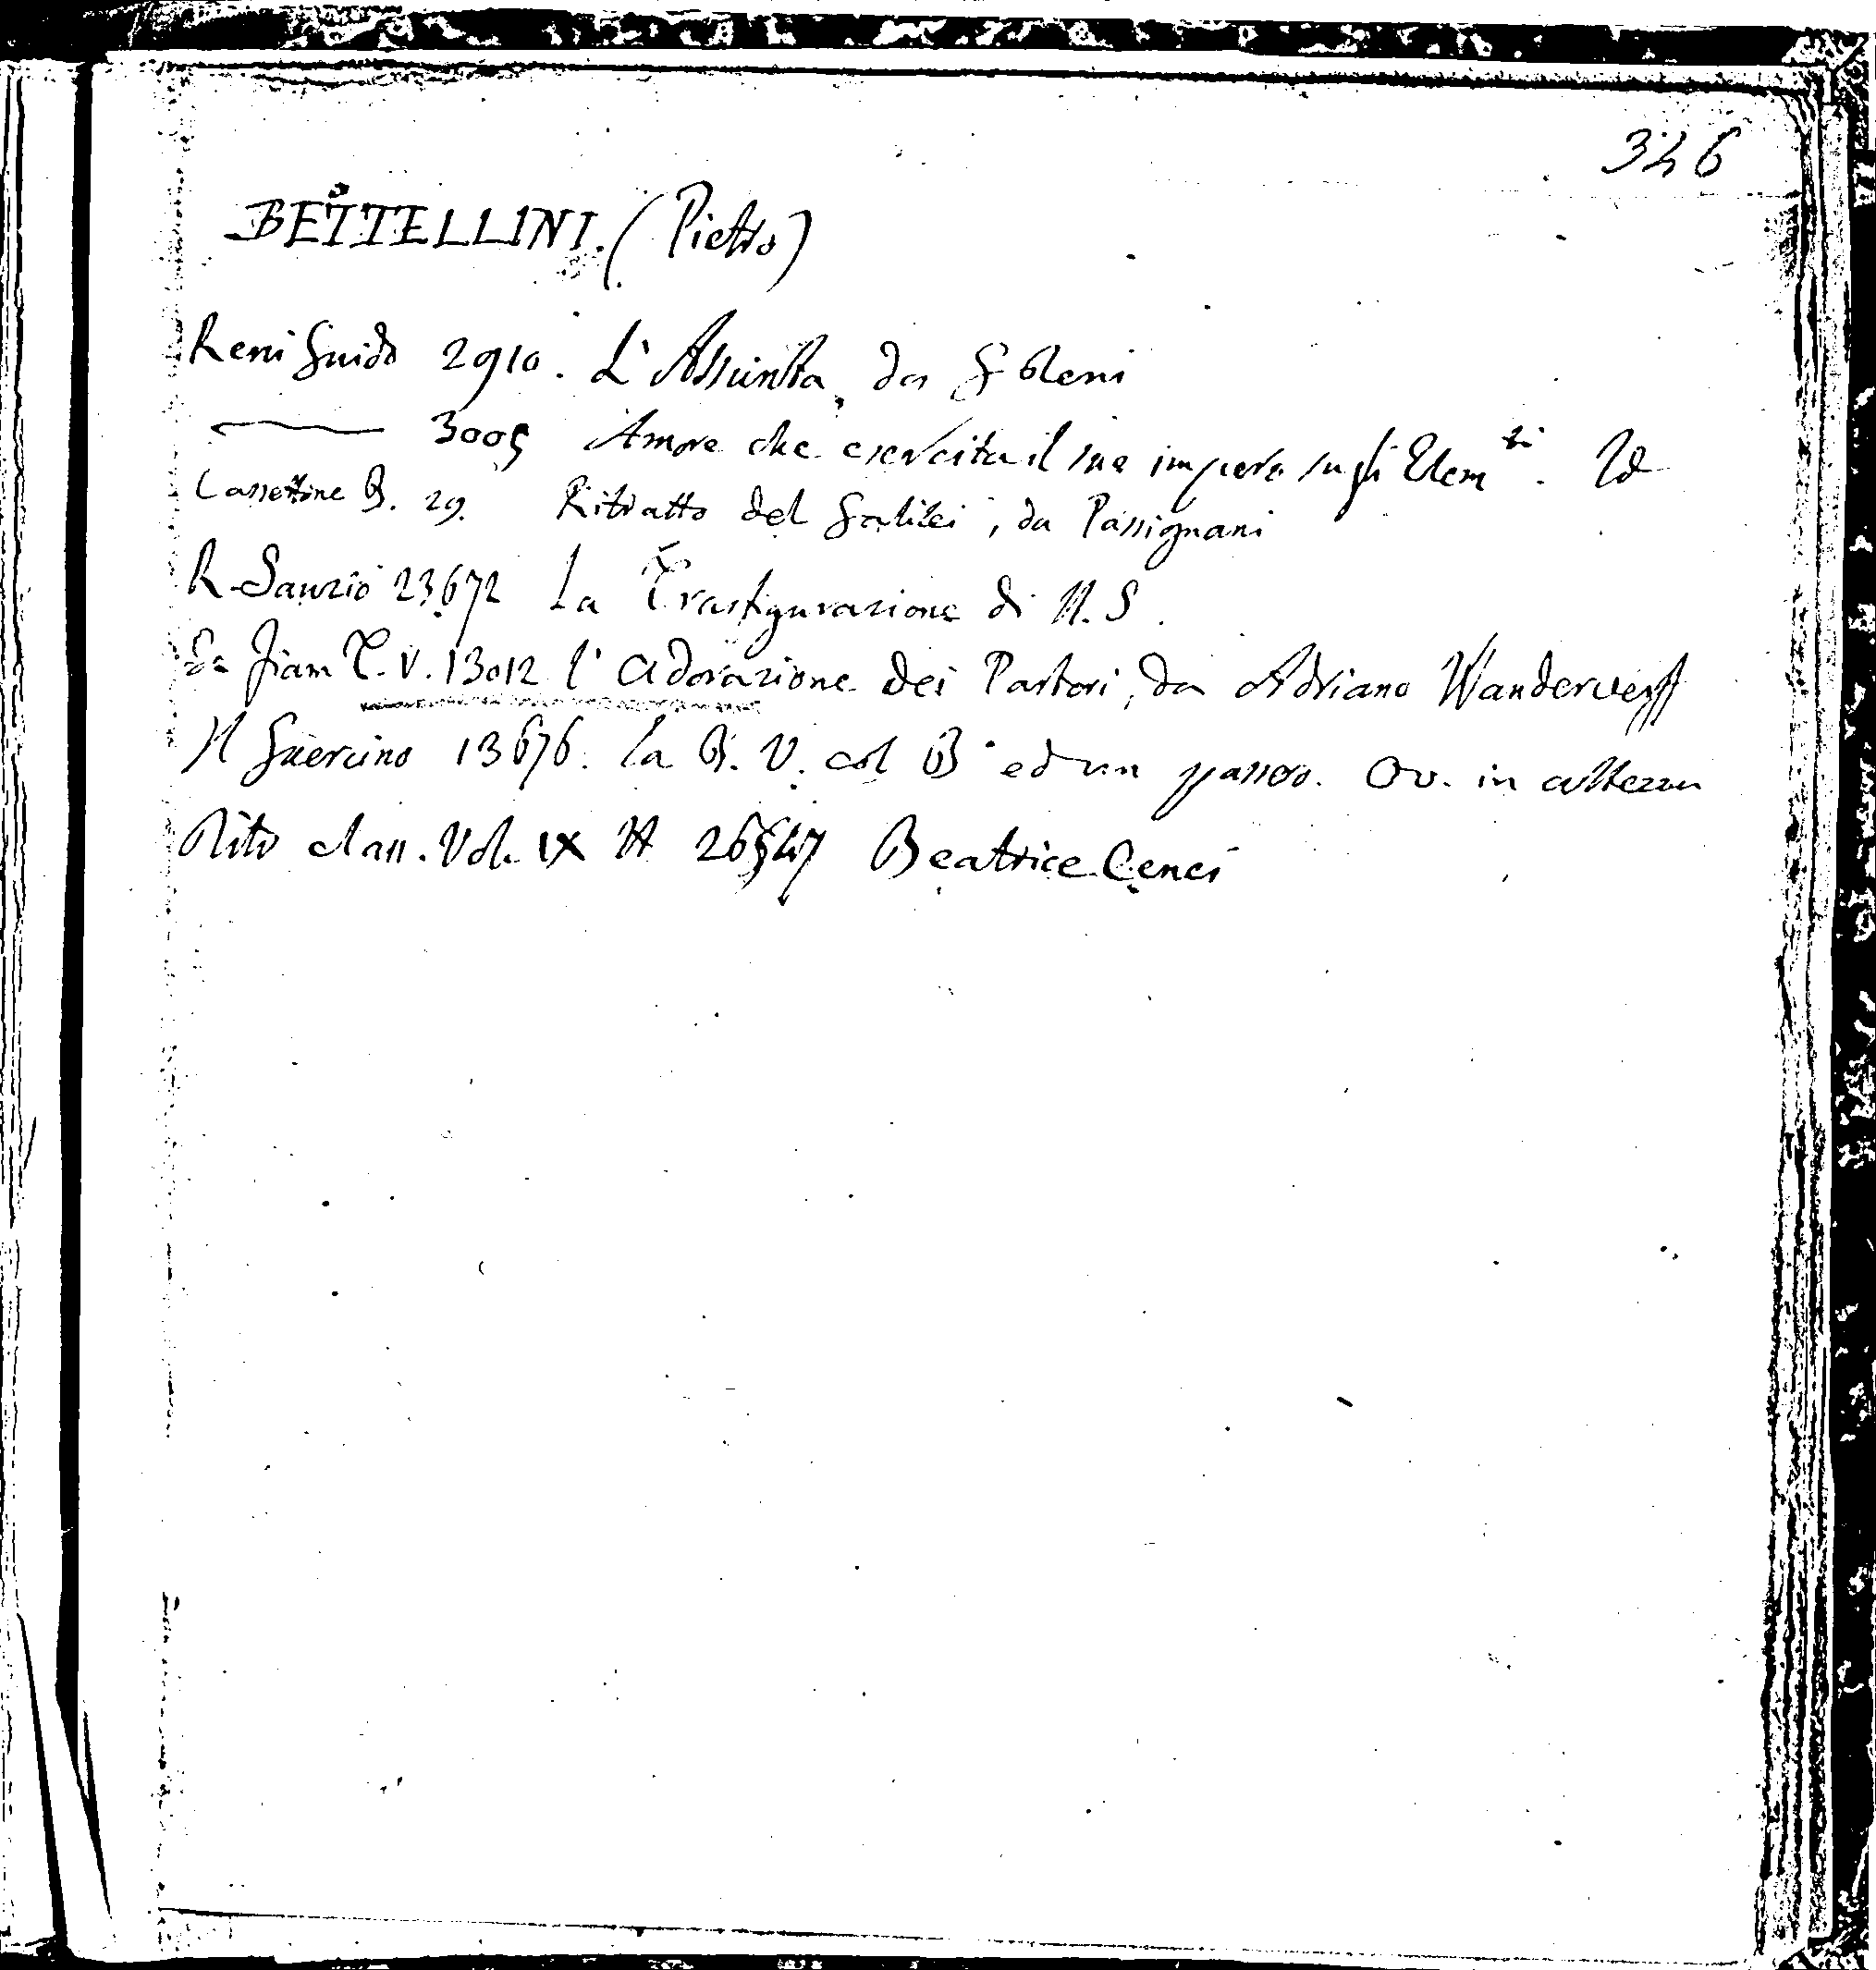 346
BETTELLINI. (Pietro)
Reni Guido 2910. L'Assunta, da G Reni
3005 Amore che esercita il suo impero sugli Elem.ti Id
Cassettine B. 29. Ritratto del Galilei, da Passignani
R Sanzio 23672 La Trasfigurazione di N. S.
Sc Fiam T. V. 13012 l'Adorazione dei Pastori, da Adriano Wanderwerff
Il Guercino 13676. La B. V. col B. ed un passero. Ov. in altezza
Ritr class. Vol. IX N 26547 Beatrice Cenci